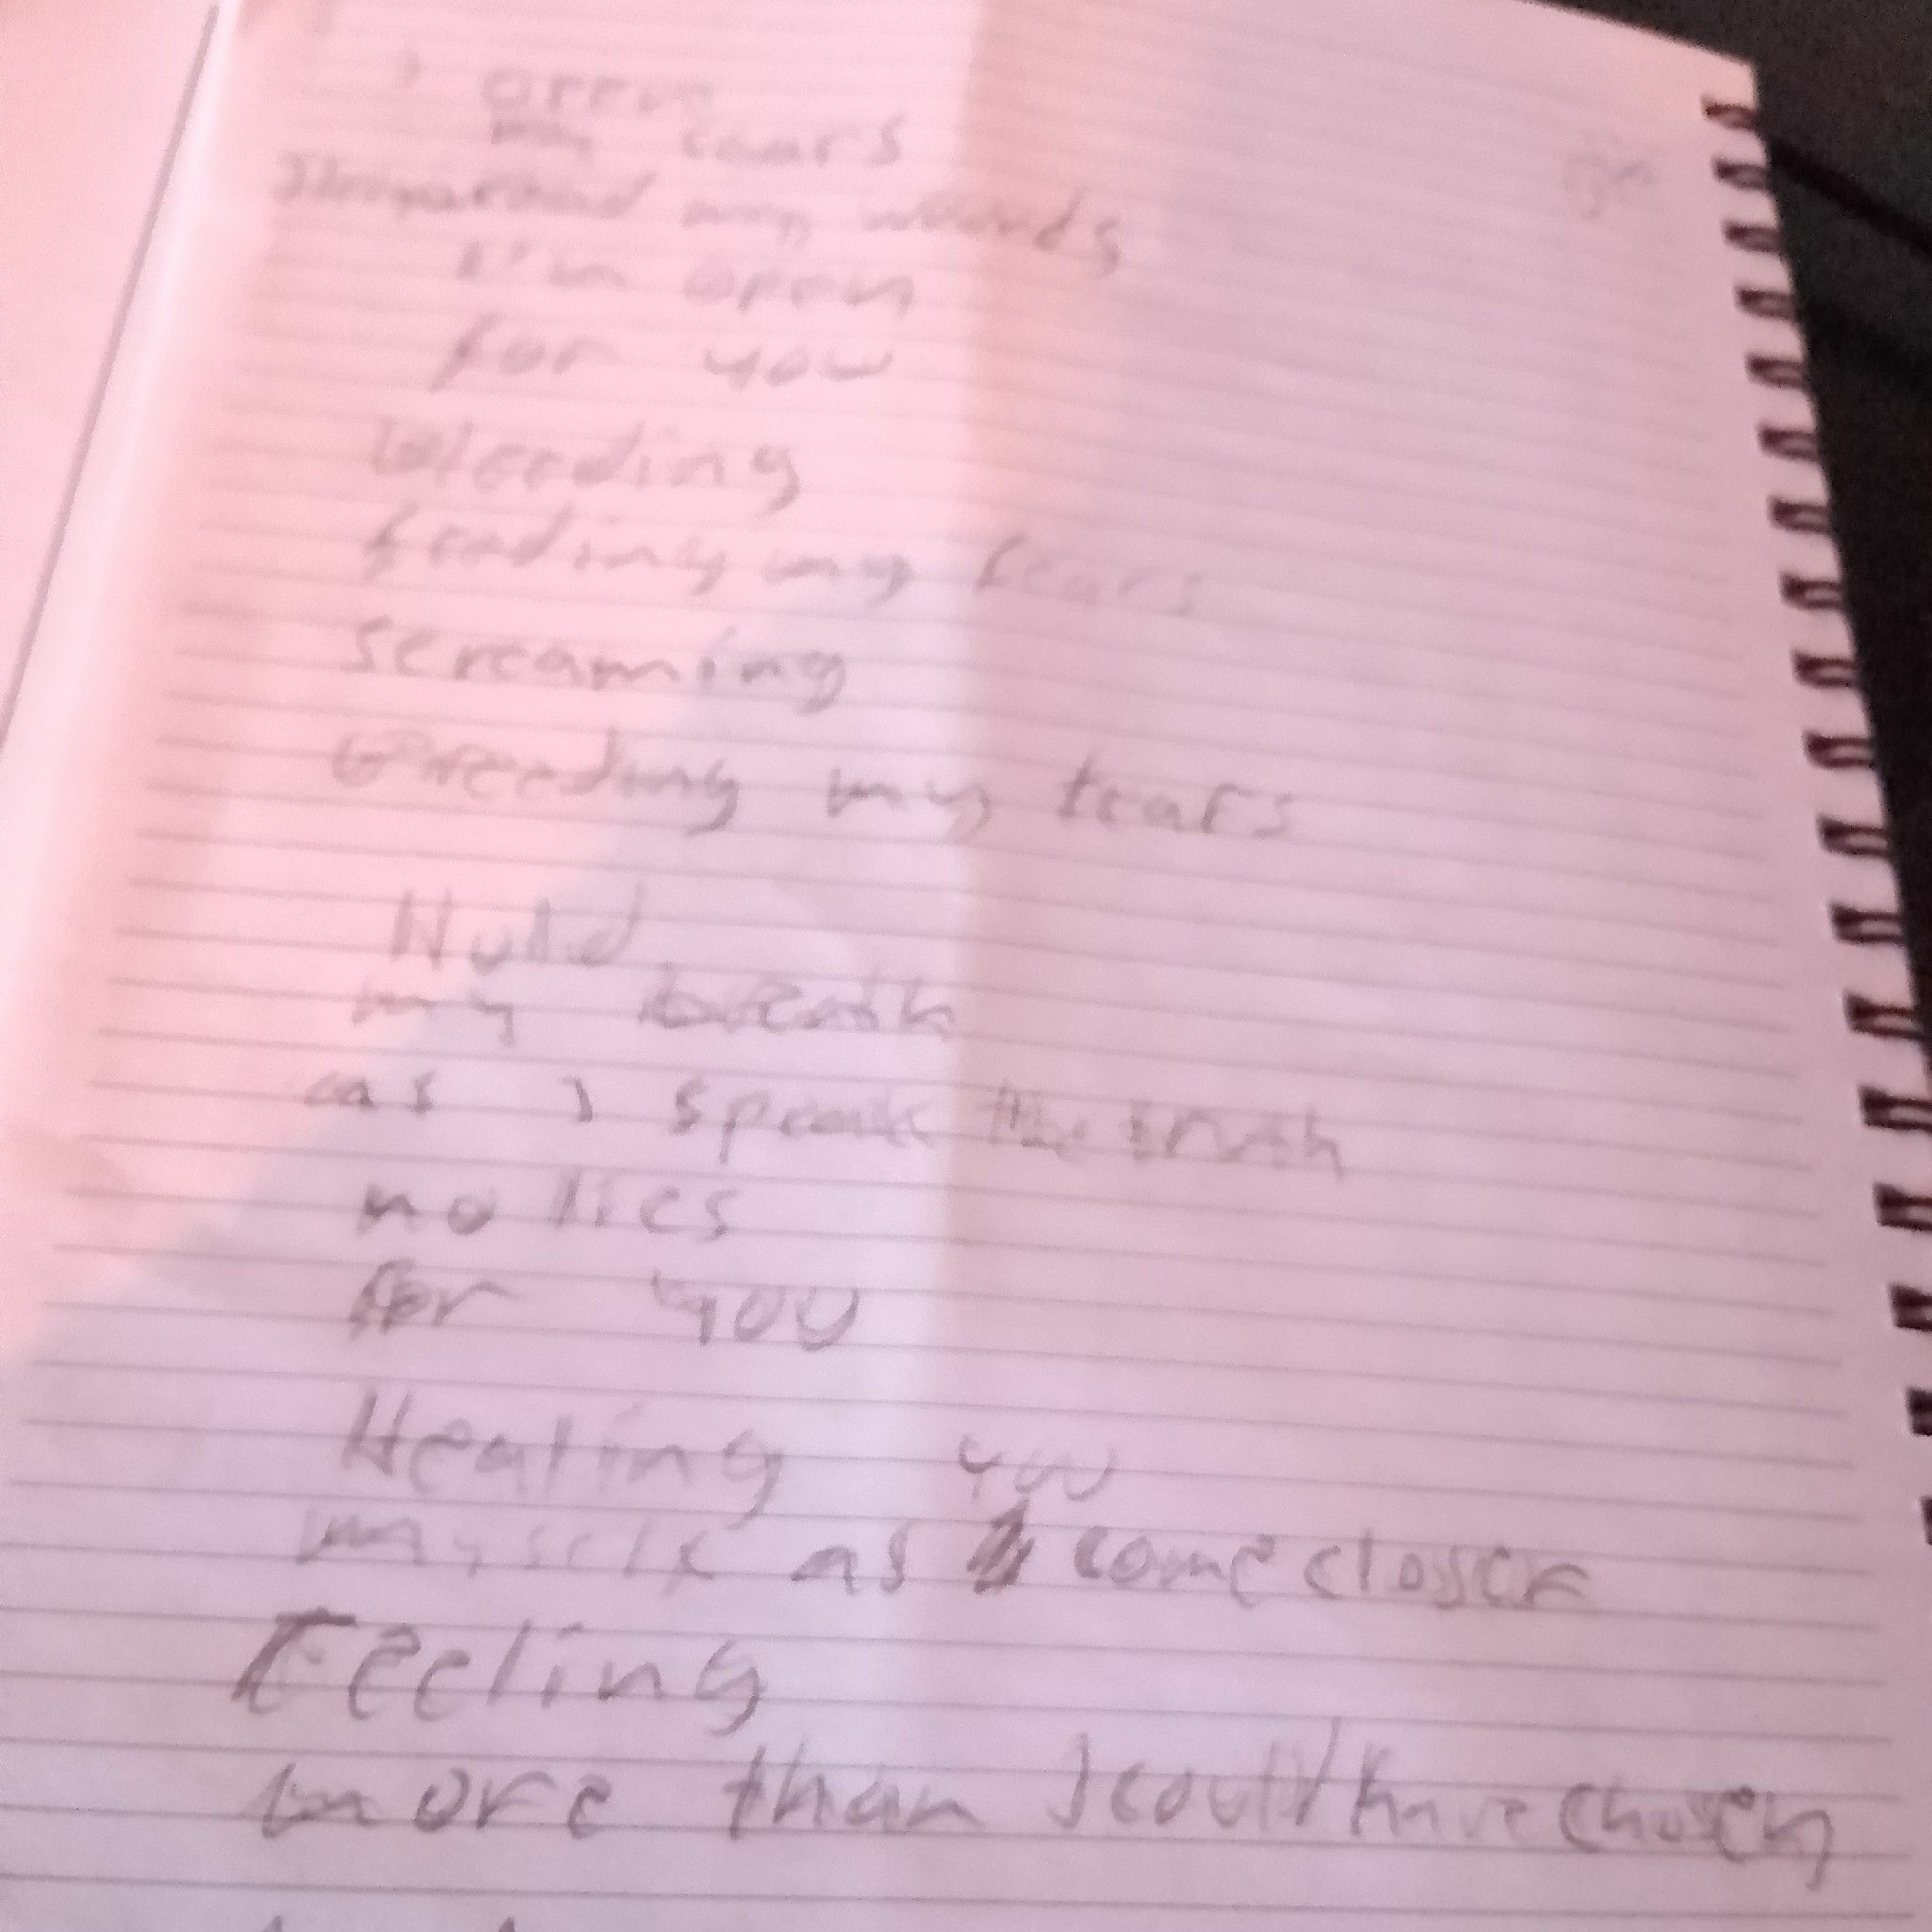 my
my words
I'm open
for you
bleeding
feeding my fears
screaming
my tears
Hold
my breath
as I speak the truth
no lies
for you
you
myself as I come closer
Feeling
more than I could have chosen